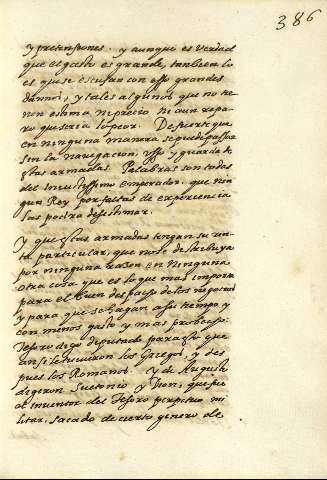 386
y pretensiones. y aunque es verdad
que el gasto es grande, tanbien lo
es que se escusan con esso grandes
daños, y tales algunos que no tie
nen estima ni precio ni aun repa
ro que seria lo peor. De suerte que
en ninguna manera se puede passar
sin la navegacion, uso y guarda de
estas armadas. Palabras son todas
del invictissimo emperador. que nin
gun Rey por faltas de experiencia
las podra desestimar.
Y que estas armadas tengan su ren
ta particular, que no se destribuya
por ninguna rason en ninguna
otra cosa que es lo que mas importa
para el buen despacho de los negocios
y para que se hagan a su tiempo y
con menos gasto y mas provecho.
Tesoro digo deputado para esto que
ansi lo tuvieron los Griegos, y des
pues los Romanos. Y de Augusto
digeron Suetonio y Dion, que fue
el inventor del Tesoro perpetuo mi
litar, sacado de cierto genero de